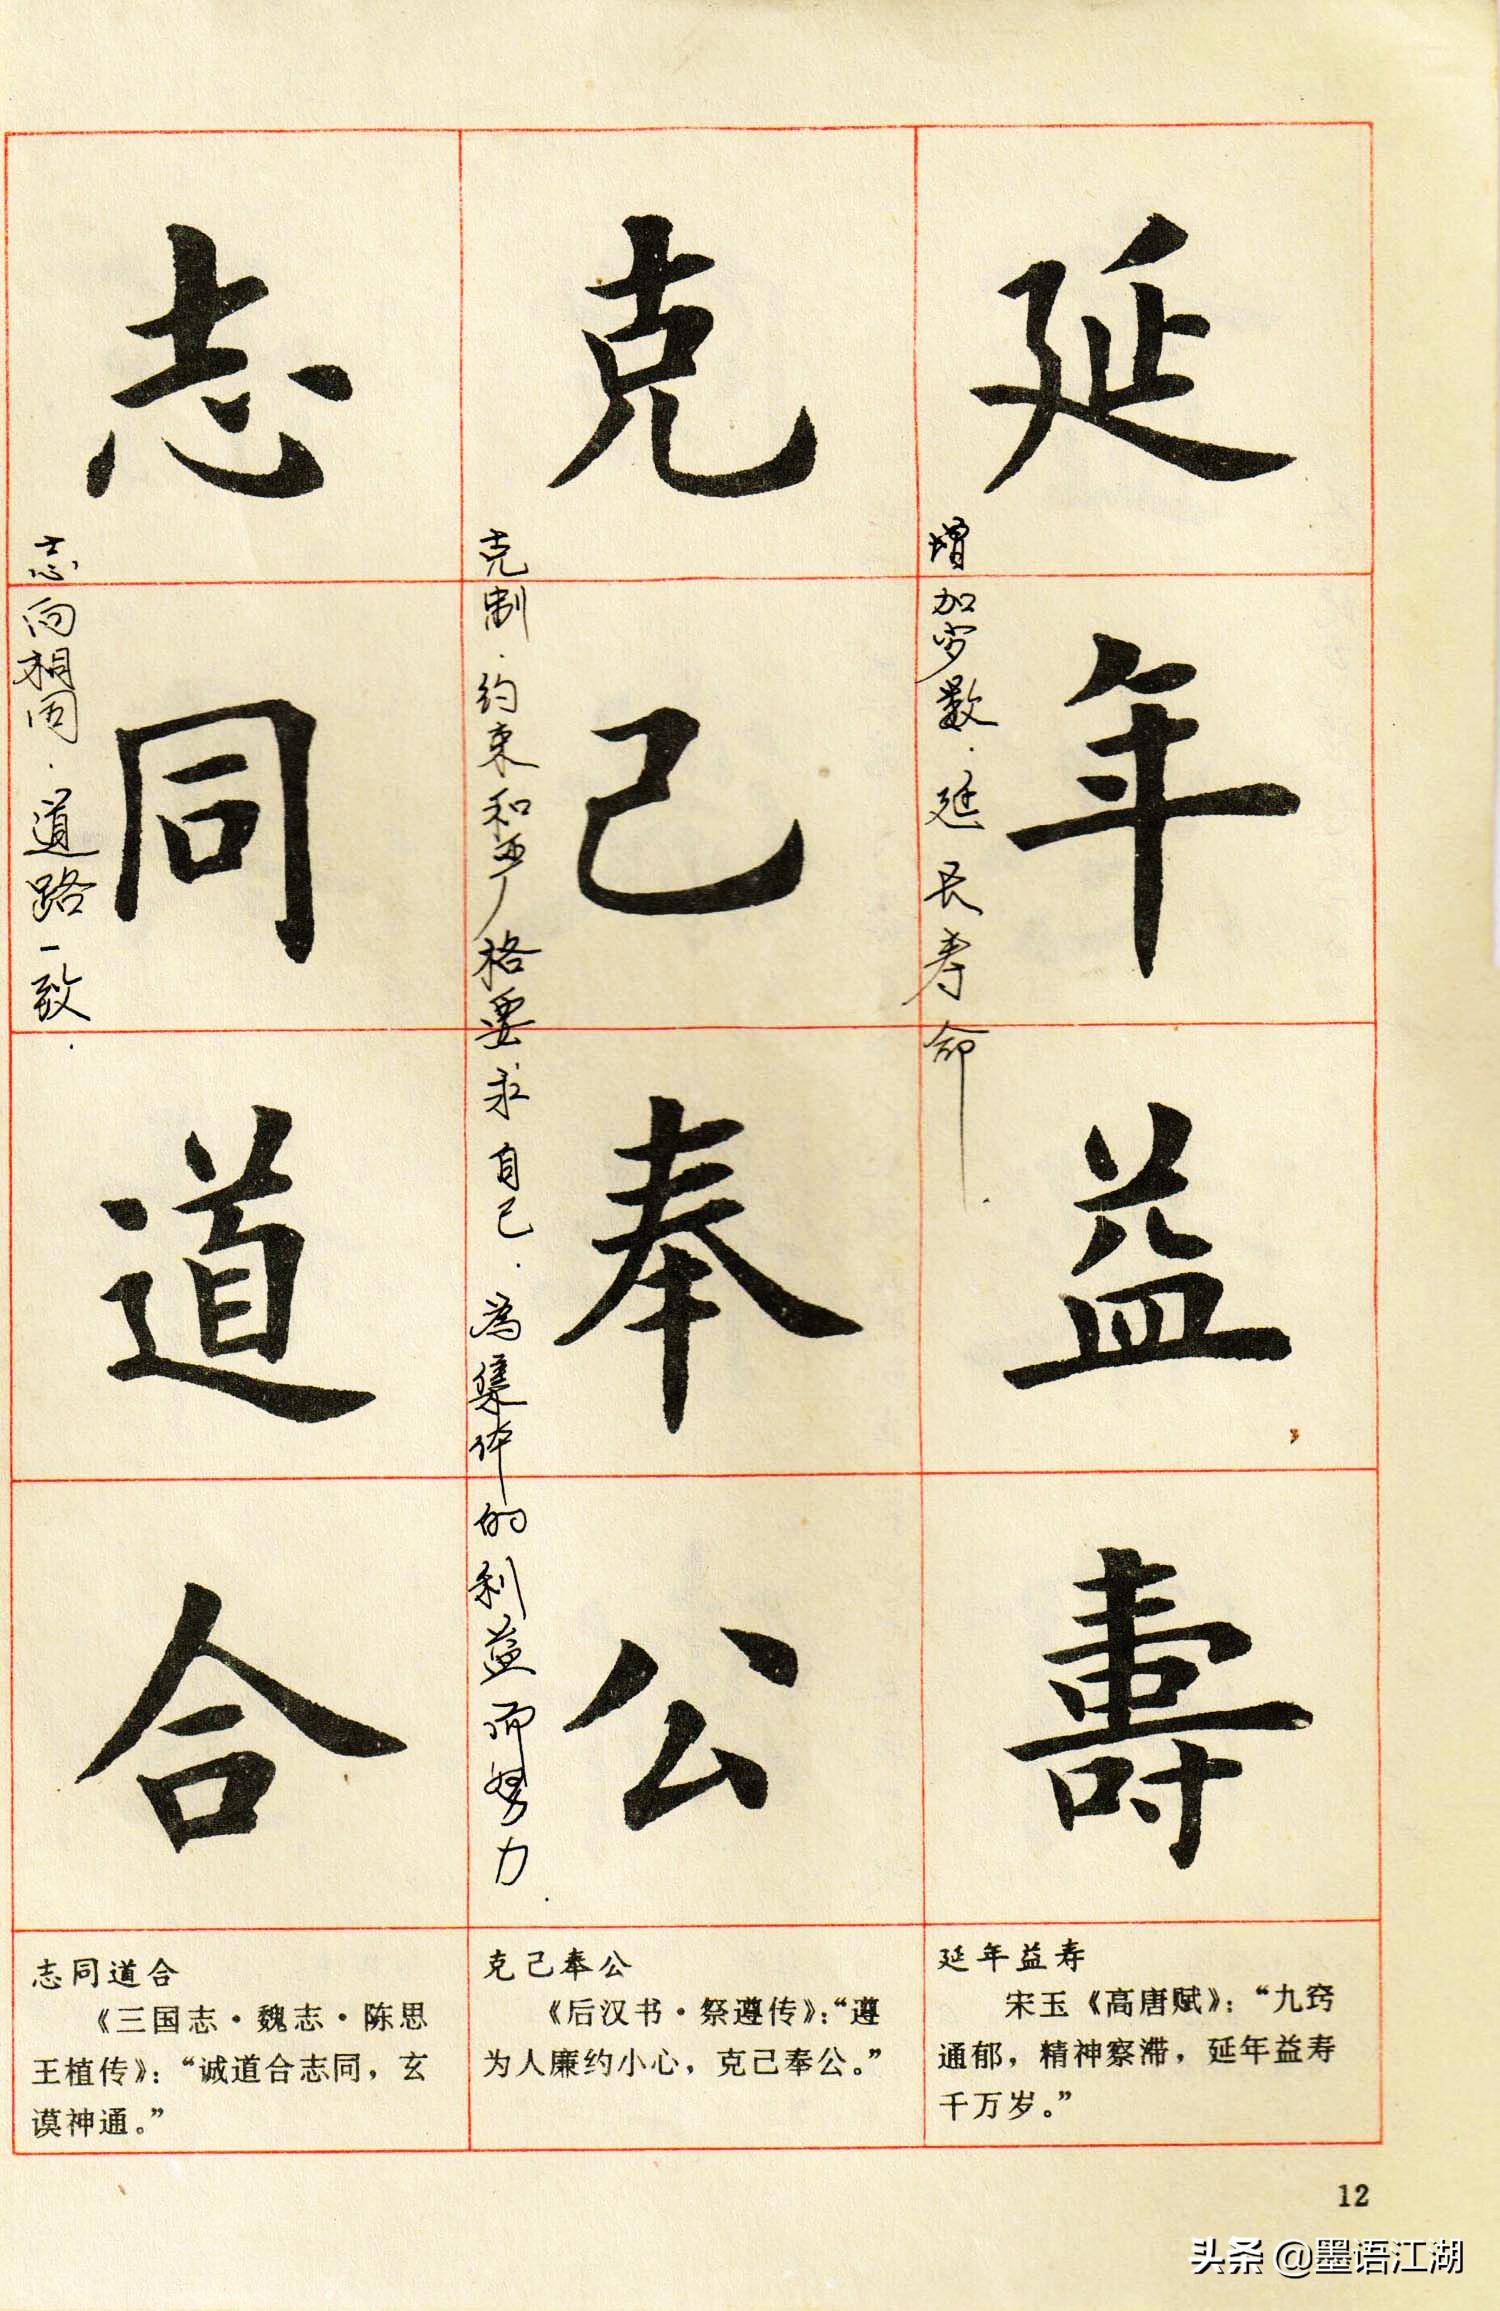 延年益壽
增加岁数.延长寿命.
克己奉公
克制.约束和严格要求自己.為集体的利益而努力.
志同道合
志向相同.道路一致.
延年益寿
宋玉《高唐赋》：“九窍
通郁，精神察滞，延年益寿
千万岁。”
克己奉公
《后汉书·祭遵传》：“遵
为人廉约小心，克己奉公。”
志同道合
《三国志·魏志·陈思
王植传》：“诚道合志同，玄
谟神通。”
12
头条 @墨语江湖